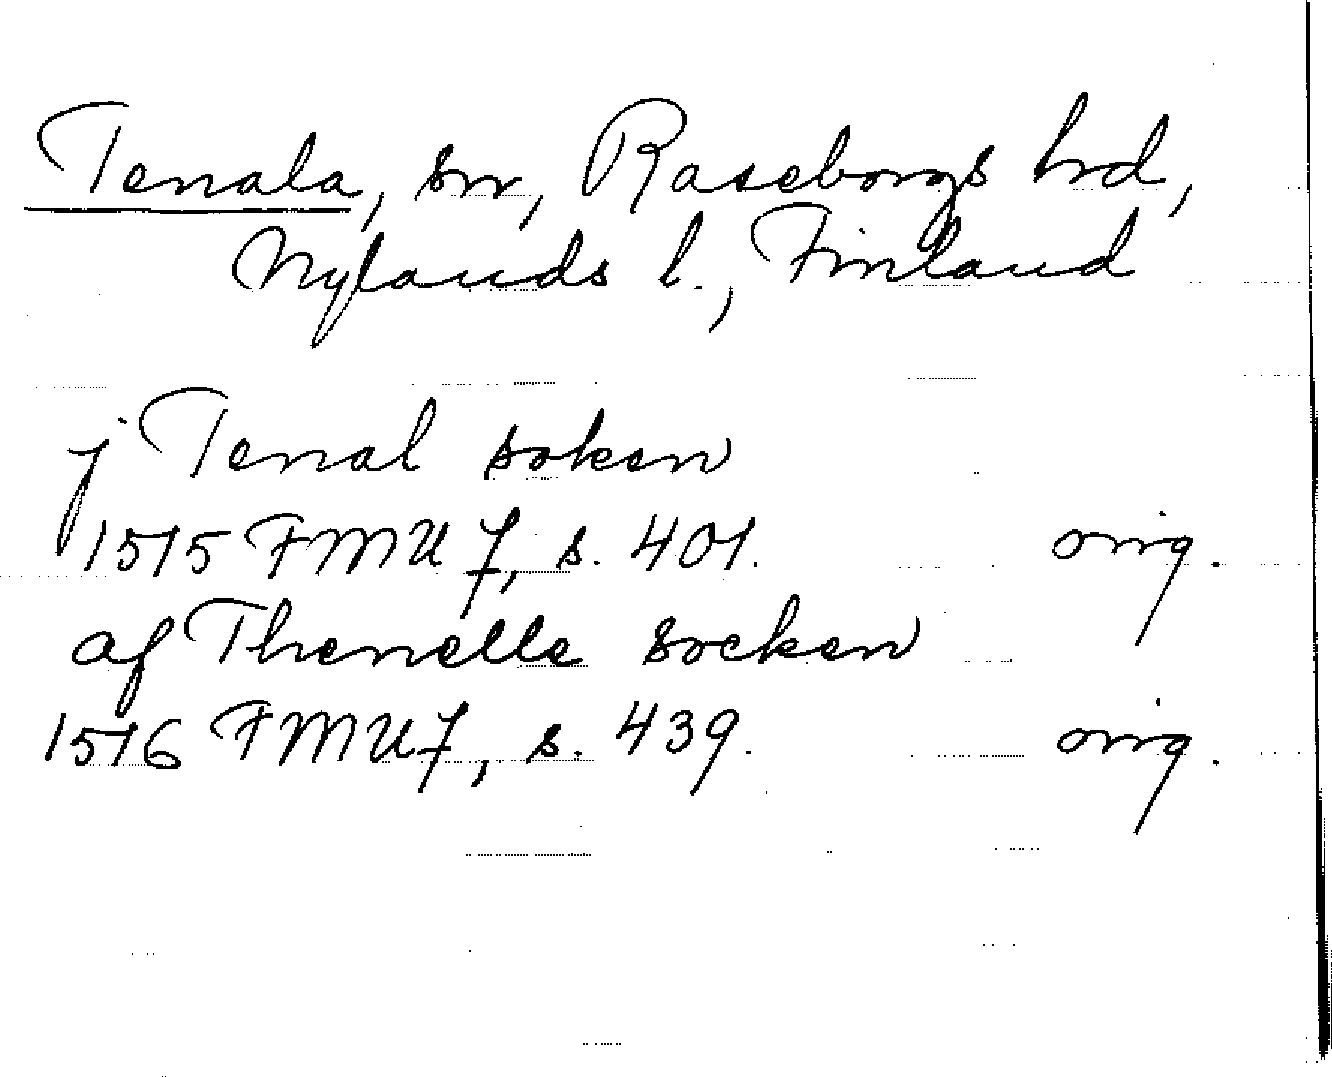 Tenala, sn, Raseborgs hd,
Nylands l., Finland
j Tenal soken
1515 FMU 7, s. 401. orig.
af Thenelle socken
1516 FMU 7, s. 439. orig.